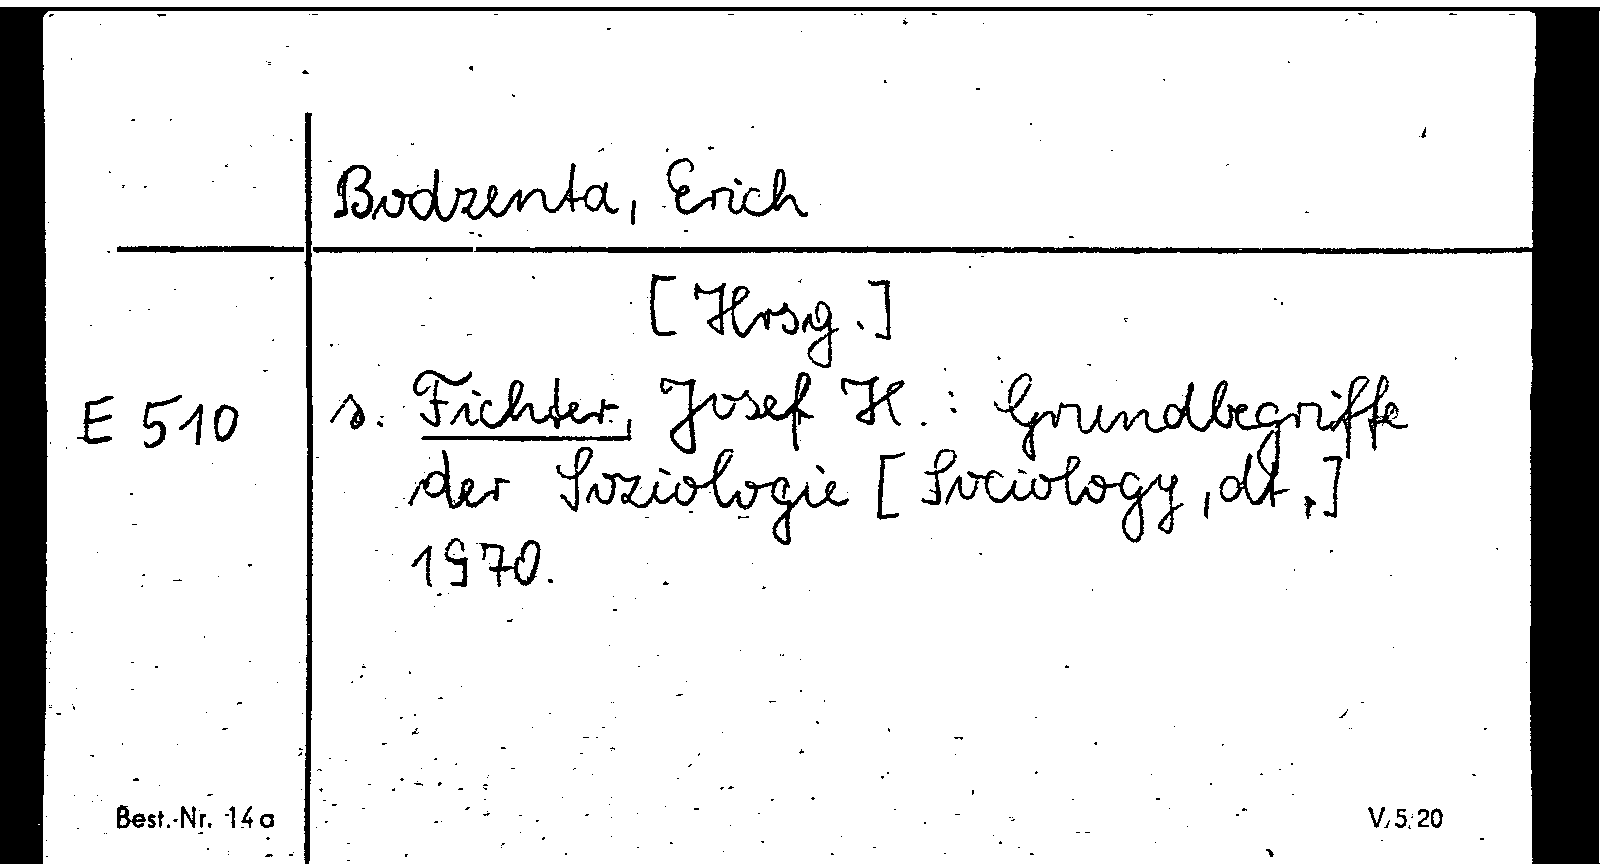 Bodzenta, Erich
[Hrsg.]
E 510 s. Fichter, Josef H. : Grundbegriffe
der Soziologie [Sociology, dt.]
1970.
Best.-Nr. 14a V/5/20